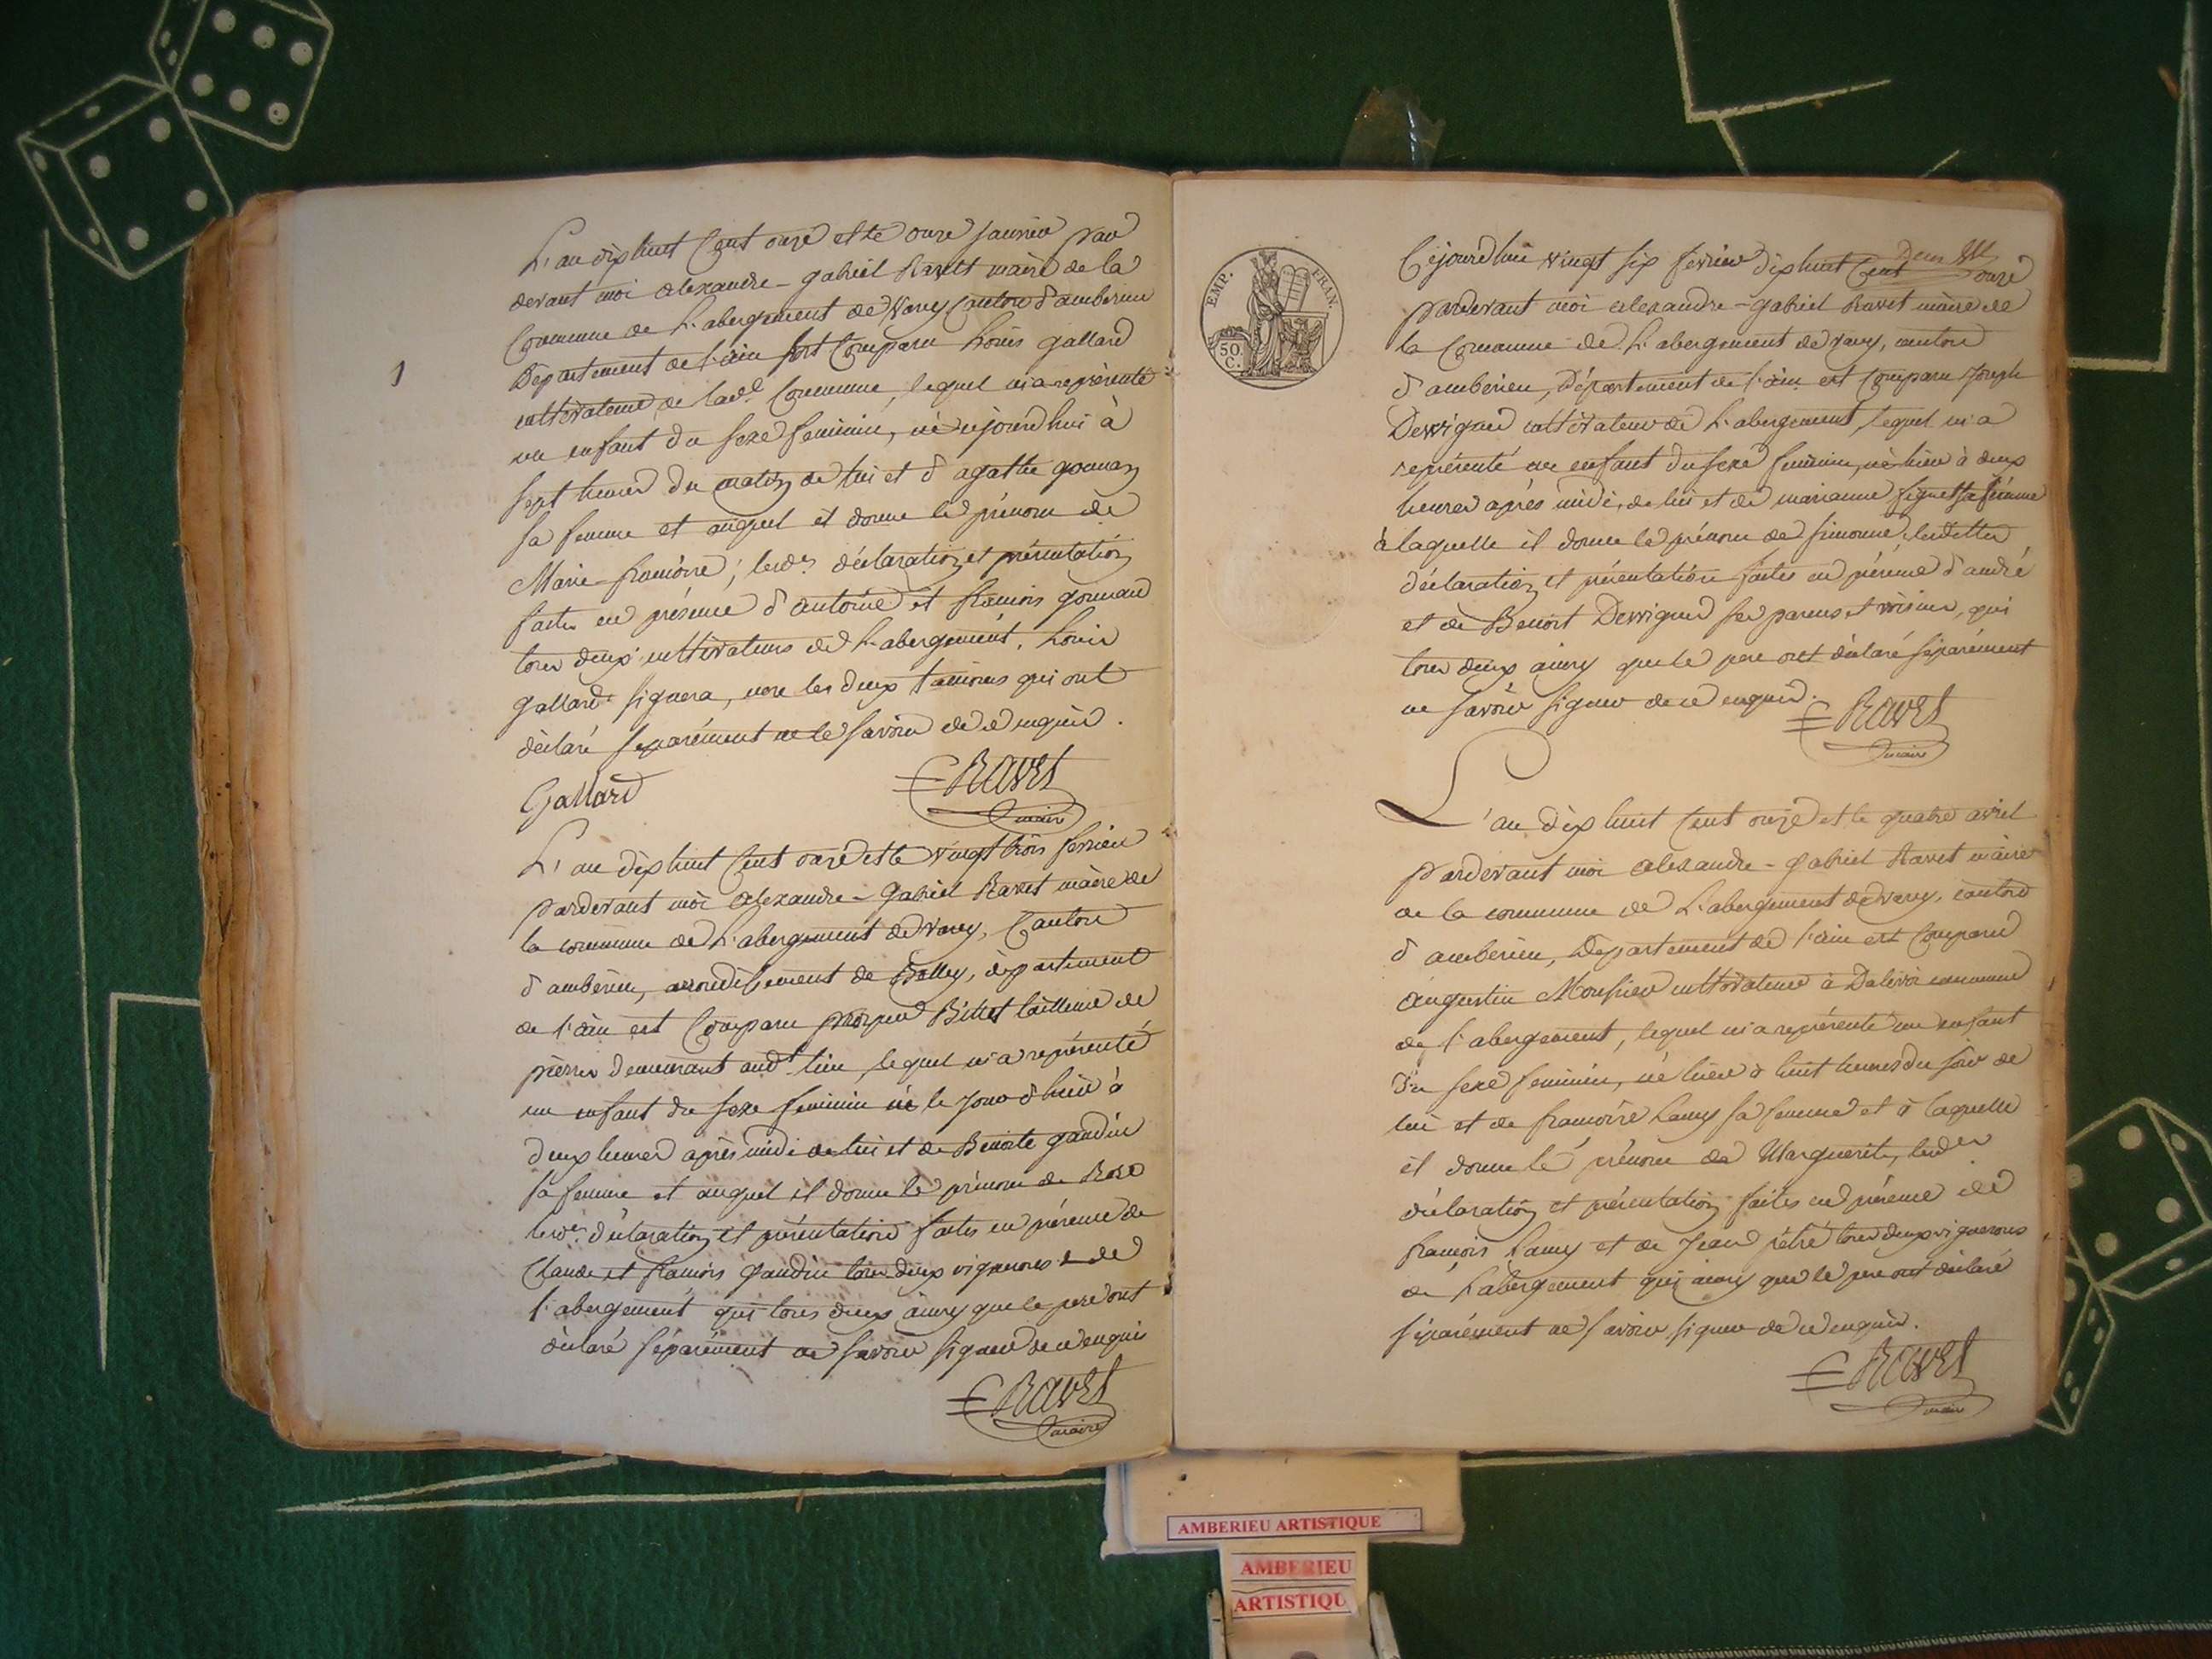 1
L'an dix huit Cent onze et le onze janvier par
devant moi alexandre-gabriel Ravet maire de la
Commune de L'abergement de Varey Canton d'amberieu
Département de l'ain est Comparu Louis gallard
cultivateur de lad.e Commune, lequel m'a représenté
un enfant du sexe feminin, né cejourd'hui à
sept heures du matin de lui et d'agathe
sa femme et auquel il donne le prénom de
Marie-françoise; lesd.es déclaration et présentation
faites en présence d'antoine et françois
tous deux cultivateurs de L'abergement. Louis
gallard signera, non les deux témoins qui ont
déclaré séparément ne le savoir de ce enquis.
Gallard RAVET
maire
L'an dix huit Cent onze et le vingt trois fevrier
pardevant moi alexandre-gabriel Ravet maire de
la commune de L'abergement de Varey, Canton
d'amberieu, arrondissement de Belley, département
de l'ain est Comparu Billet tailleur de
pierres demeurant aud.t lieu, lequel m'a représenté
un enfant du sexe feminin né le jour d'hui à
deux heures après midi de lui et de Benoite gaudin
sa femme et auquel il donne le prénom de Rose
lesd.es déclaration et présentation faites en présence de
Claude et françois gaudin tous deux vignerons de
l'abergement qui tous deux ainsy que le pere ont
déclaré séparément ne savoir signer de ce enquis
RAVET
maire
EMP. FRAN.
50 C.
Cejourd'hui vingt six fevrier dix huit Cent onze
pardevant moi alexandre-gabriel Ravet maire de
la Commune de L'abergement de varey, canton
d'amberieu, Département de l'ain est Comparu Joseph
Dervigner cultivateur de L'abergement, lequel m'a
représenté un enfant du sexe feminin, né hier à deux
heures après midi, de lui et de marianne sa femme
à laquelle il donne le prénom de simonne, lesdittes
déclaration et présentation faites en présence d'andré
et de Benoit Dervigner ses parens et voisins, qui
tous deux ainsy que le pere ont déclaré séparément
ne savoir signer de ce enquis.
RAVET
maire
L'an dix huit Cent onze et le quatre avril
pardevant moi alexandre-gabriel Ravet maire
de la commune de L'abergement de varey, canton
d'amberieu, Département de l'ain est Comparu
augustin cultivateur à Dalivoi commune
de l'abergement, lequel m'a représenté un enfant
du sexe feminin, né hier à huit heures du soir de
lui et de françoise Lamy sa femme et à laquelle
il donne le prénom de Marguerite, lesd.es
déclaration et présentation faites en présence de
françois Lamy et de Jean tous deux vignerons
de L'abergement qui ainsy que le pere ont déclaré
séparément ne savoir signer de ce enquis.
RAVET
maire
AMBERIEU ARTISTIQUE
AMBERIEU
ARTISTIQU